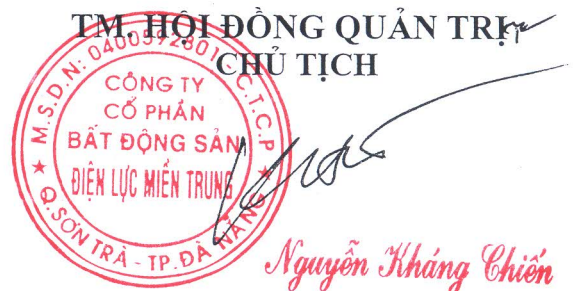 TM. HỘI ĐỒNG QUẢN TRỊ
CHỦ TỊCH
M.S.D.N: 0400592801 - C.T.C.P
CÔNG TY
CỔ PHẦN
BẤT ĐỘNG SẢN
ĐIỆN LỰC MIỀN TRUNG
Q.SƠN TRÀ - TP.ĐÀ NẴNG
Nguyễn Kháng Chiến